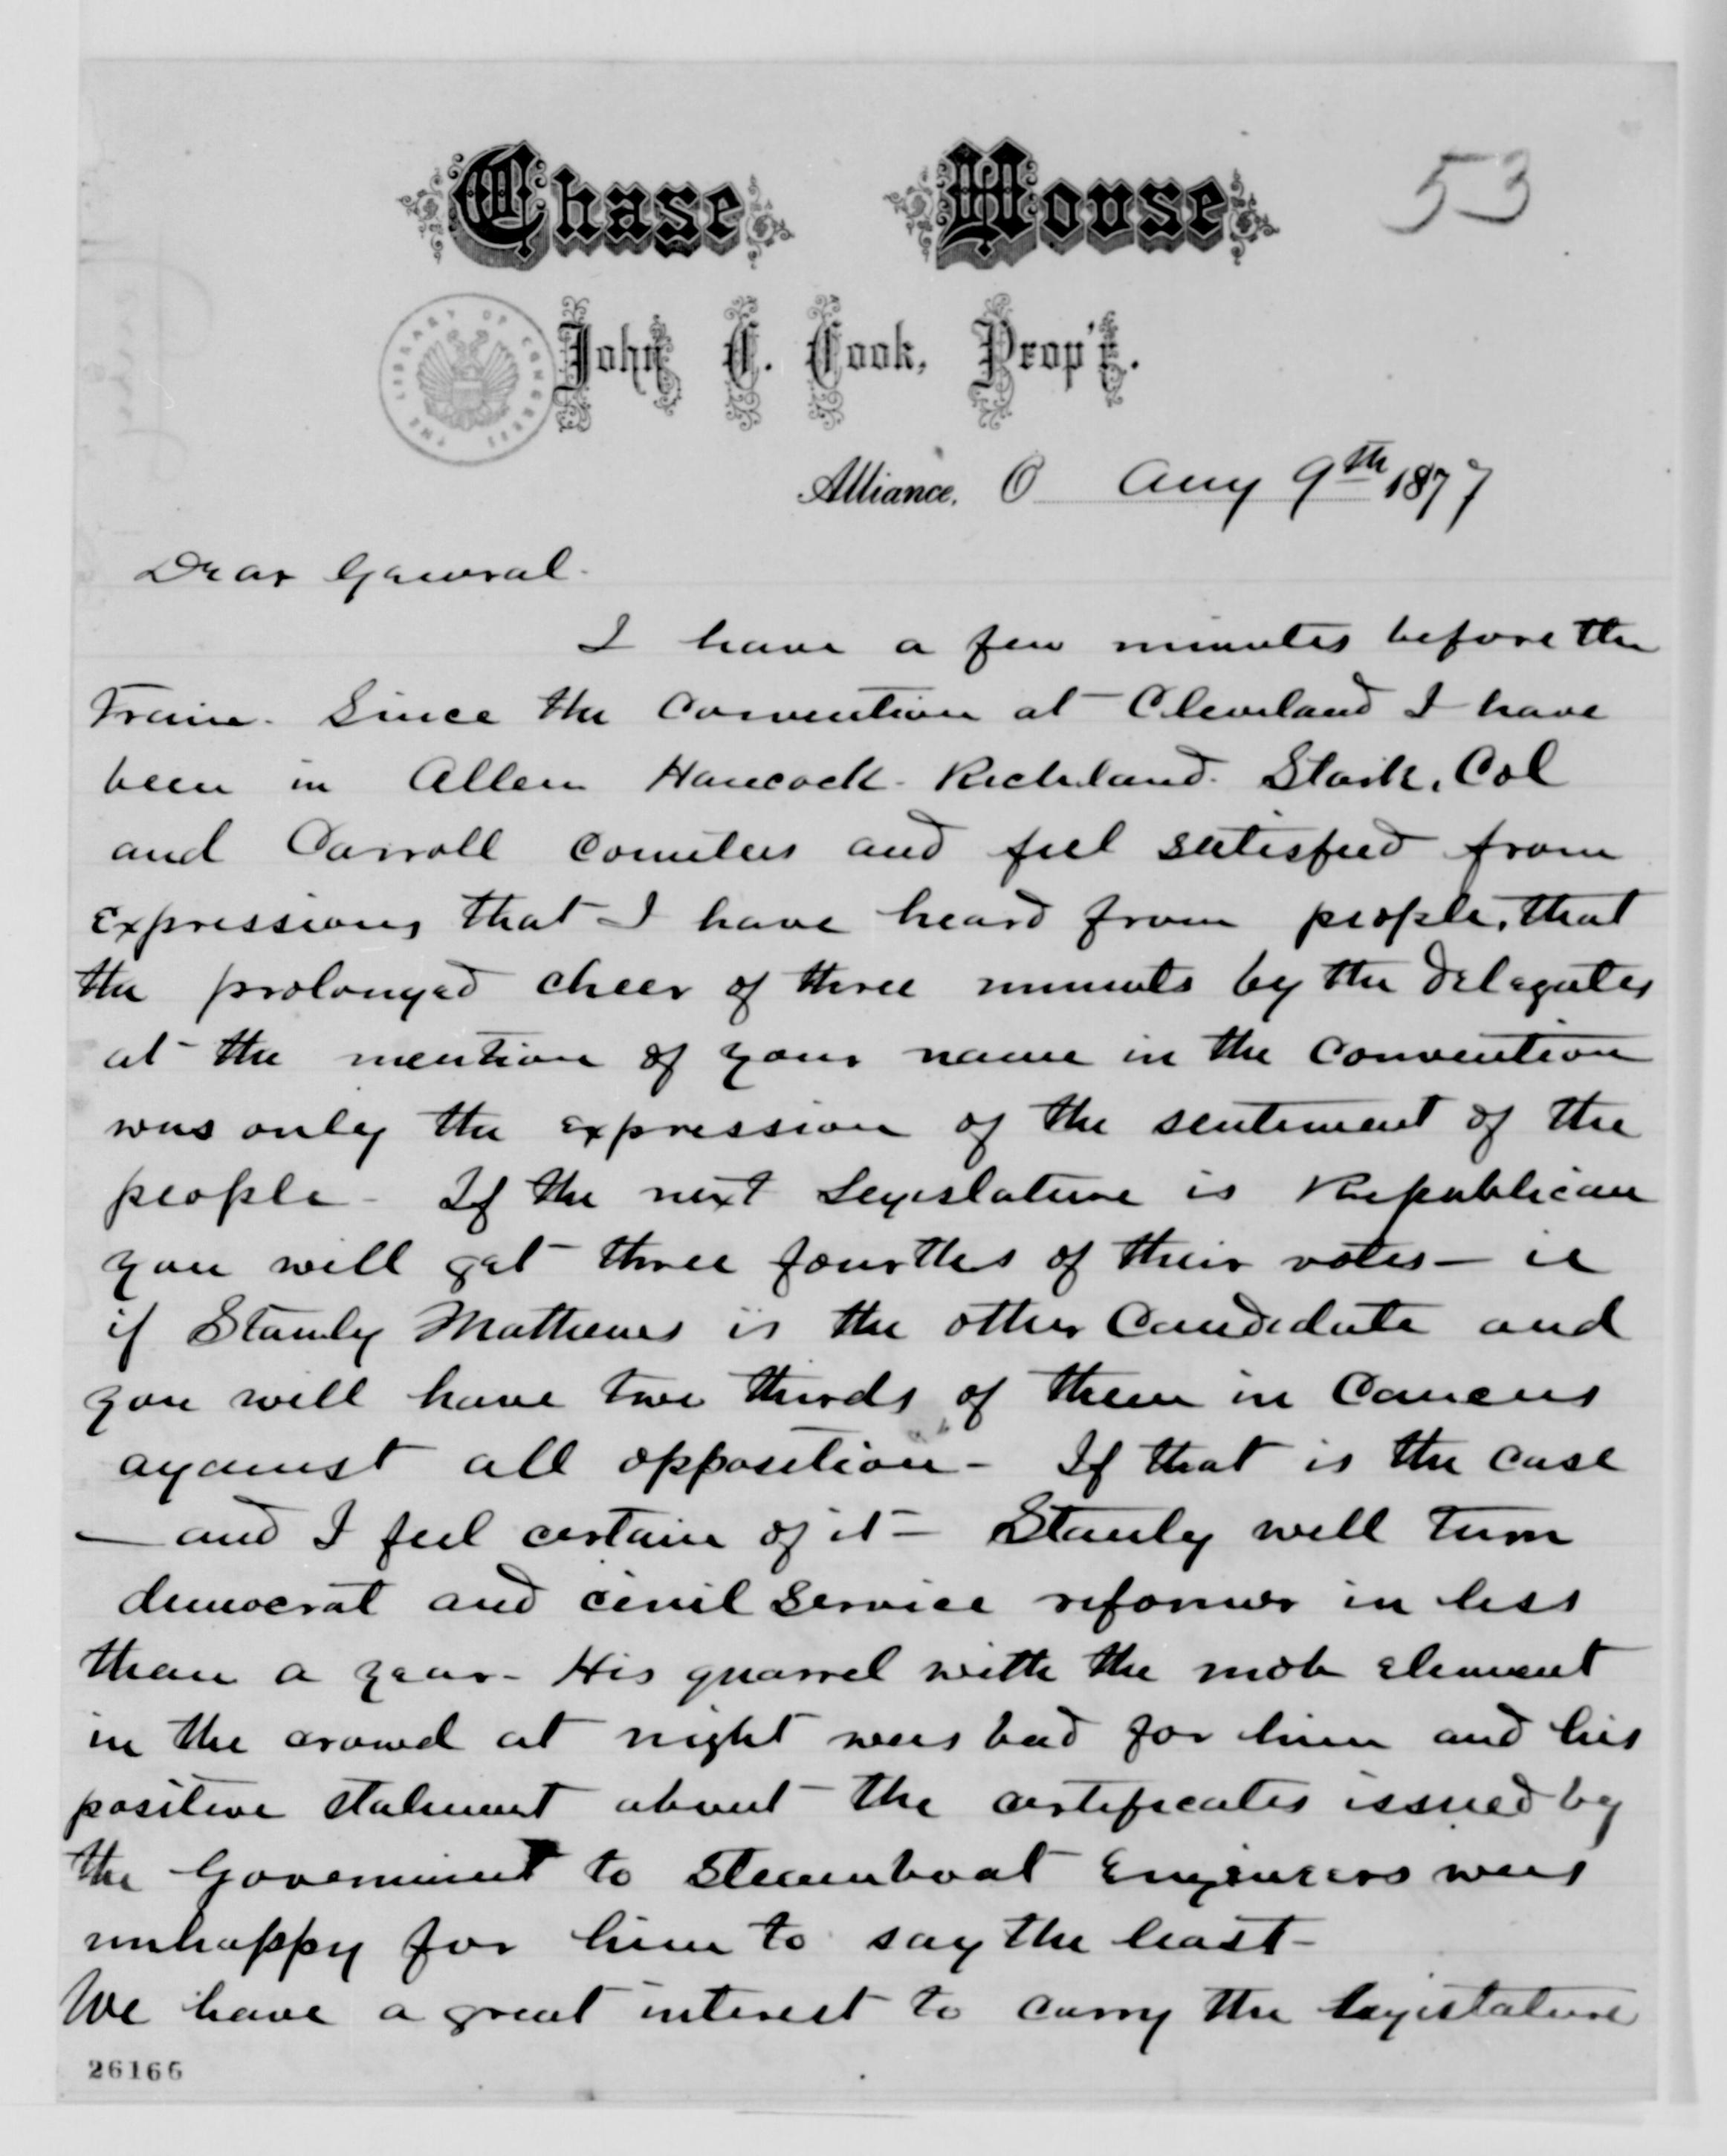 53
Chase House
John C. Cook, Prop'r.
THE LIBRARY OF CONGRESS
Alliance, O Aug 9th 1877
Dear General.
I have a few minutes before the
train. Since the Convention at Cleveland I have
been in Allen Hancock. Richland. Stark, Col
and Carroll Counties and feel satisfied from
expressions that I have heard from people, that
the prolonged cheer of three minuets by the delegates
at the mention of your name in the Convention
was only the expression of the sentiment of the
people - If the next Legislature is Republican
you will get three fourths of their votes - ie
if Stanly Mathews is the other Candidate and
you will have two thirds of them in Caucus
against all opposition - If that is the case
- and I feel certain of it - Stanly will turn
democrat and civil service reformer in less
than a year - His quarrel with the mob element
in the crowd at night was bad for him and his
positive statement about the certificates issued by
the Government to Steamboat Engineers was
unhappy for him to say the least -
We have a great interest to carry the legislature
26166